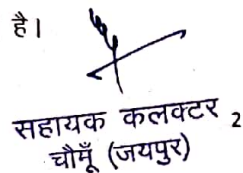 है।
सहायक कलक्टर 2
चौमूँ (जयपुर)